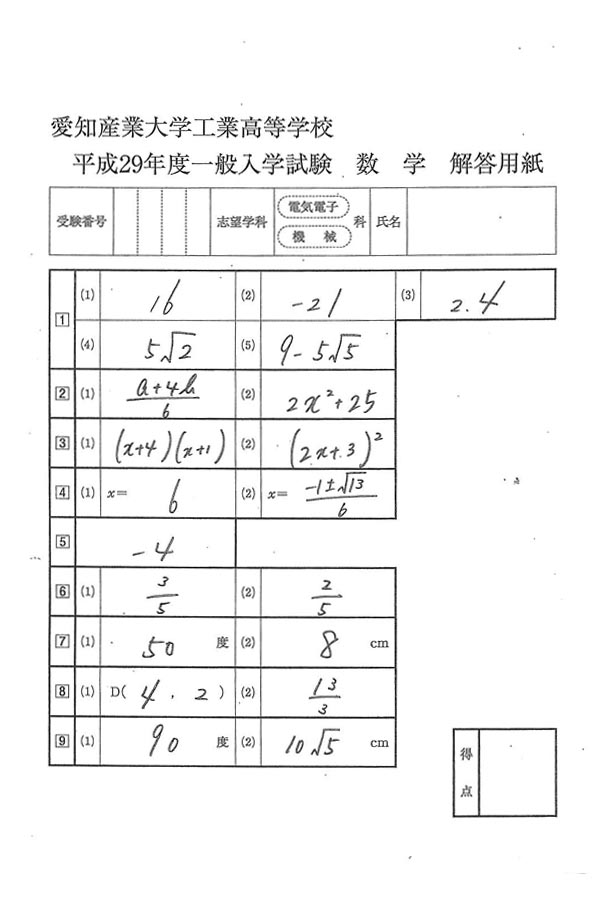 愛知産業大学工業高等学校
平成29年度一般入学試験 数 学 解答用紙
受験番号 志望学科 電気電子 機 械 科 氏名
1 (1) 16 (2) -21 (3) 2.4
(4) 5√2 (5) 9-5√5
2 (1) (a+4b)/6 (2) 2x²+25
3 (1) (x+4)(x+1) (2) (2x+3)²
4 (1) x= 6 (2) x= (-1±√13)/6
5 -4
6 (1) 3/5 (2) 2/5
7 (1) 50 度 (2) 8 cm
8 (1) D( 4 , 2 ) (2) 13/3
9 (1) 90 度 (2) 10√5 cm
得
点